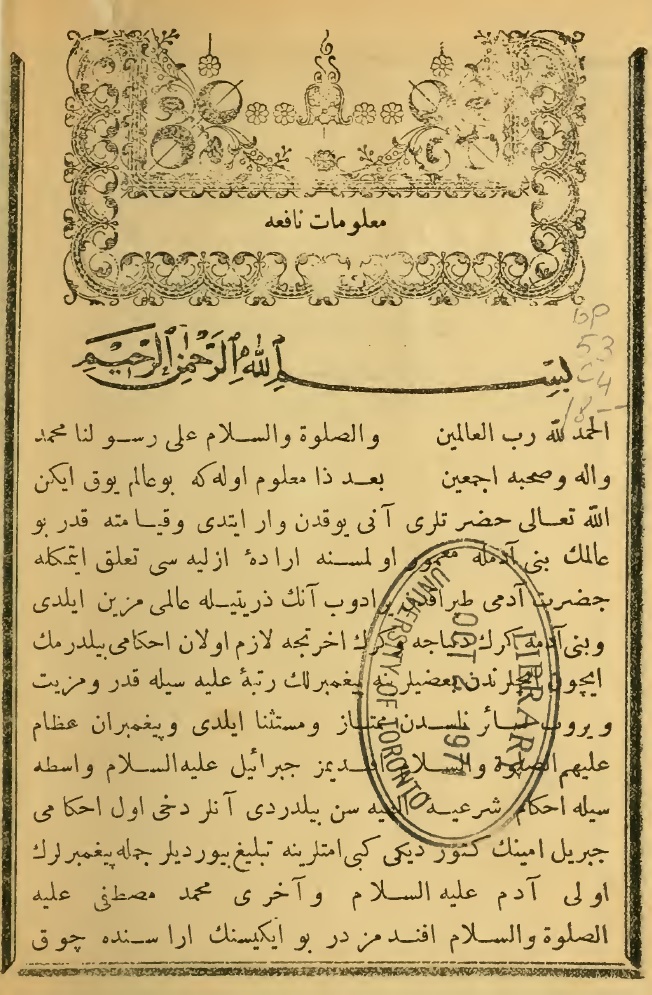 معلومات نافعه
بسم الله الرحمن الرحيم
BP
53
C4
18--
الحمد لله رب العالمين والصلوة والسلام على رسولنا محمد
واله وصحبه اجمعين بعد ذا معلوم اوله كه بوعالم يوق ايكن
الله تعالى حضرتلرى آنى يوقدن وار ايتدى وقيامته قدر بو
عالمك بنى آدمله معمور اولمسنه ارادهٔ ازليه سى تعلق ايتمكله
حضرت آدمى طبراقدن يرادوب آنك ذريتيله عالمى مزين ايلدى
وبنى آدمه كرك دنياجه وكرك اخرتجه لازم اولان احكامى بيلدرمك
ايچون ايچلرندن بعضيلرينه پيغمبرلك رتبهٔ عليه سيله قدر ومزيت
ويروب سائر ناسدن ممتاز ومستثنا ايلدى وپيغمبران عظام
عليهم الصلوة والسلام افنديمز جبرائيل عليه السلام واسطه
سيله احكام شرعيه الهيه سن بيلدردى آنلر دخى اول احكامى
جبريل امينك كتورديكى كبى امتلرينه تبليغ بيورديلر جمله پيغمبرلرك
اولى آدم عليه السلام وآخرى محمد مصطفى عليه
الصلوة والسلام افندمزدر بو ايكيسنك اراسنده چوق
LIBRARY
OCT 2 1971
UNIVERSITY OF TORONTO